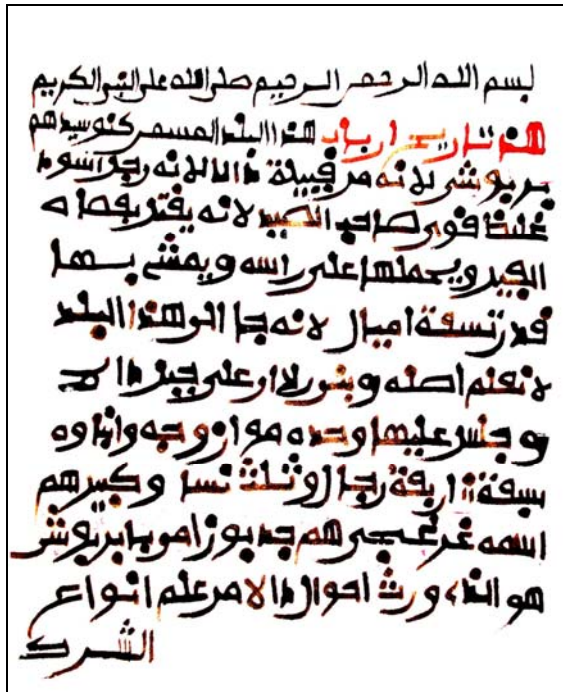 بسم الله الرحمن الرحيم صلى الله على النبي الكريم
هذا تاريخ ارباب هذا البلد المسمى كنو سيدهم
بربوش لانه من قبيلة دالا لانه رجل اسود
غليظ قوي صاحب الصيد لانه يقتل بعصاه
الفيل ويحملها على راسه ويمشي بها
قدر تسعة اميال لانه جا الى هذا البلد
لا نعلم اصله وبنى دار على جبل دالا
وجلس عليها وحده هو ازوجه وابناوه
سبعة اربعة رجال وثلث نسا وكبيرهم
اسمه هم جد بربوش
هو الذي ورث احوال دالا من علم انواع
الشرك